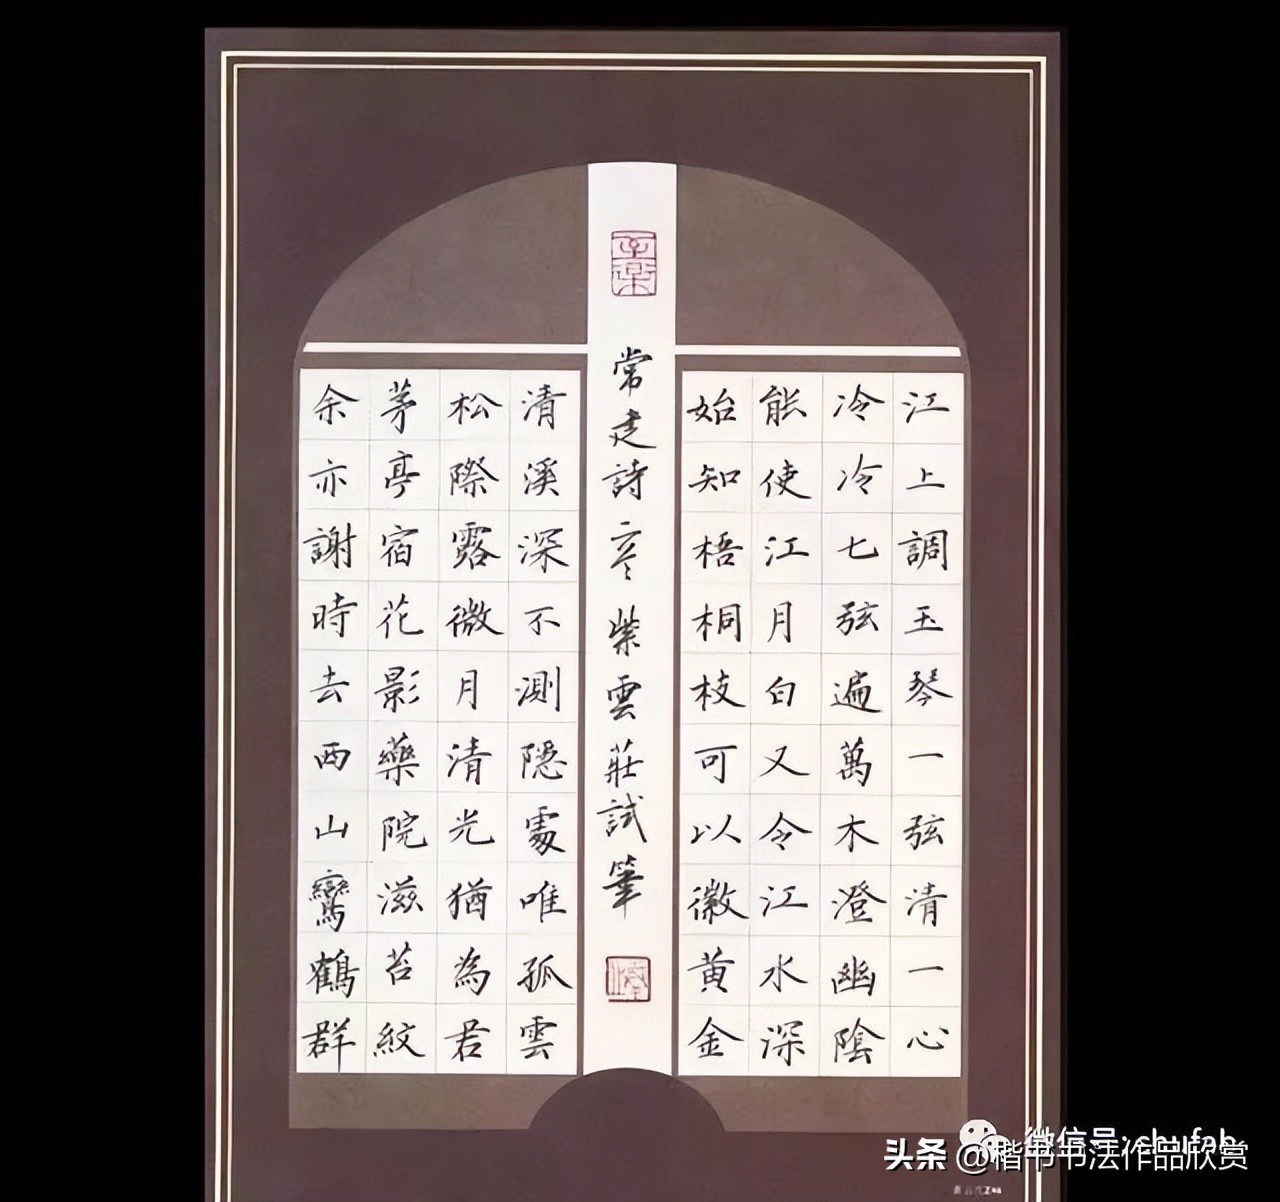 江上調玉琴一弦清一心
冷冷七弦遍萬木澄幽陰
能使江月白又令江水深
始知梧桐枝可以徽黄金
至樂
常建詩 紫雲莊試筆
清溪深不測隱處唯孤雲
松際露微月清光猶為君
茅亭宿花影藥院滋苔紋
余亦謝時去西山鸞鶴群
微信号:
头条 @楷书书法作品欣赏